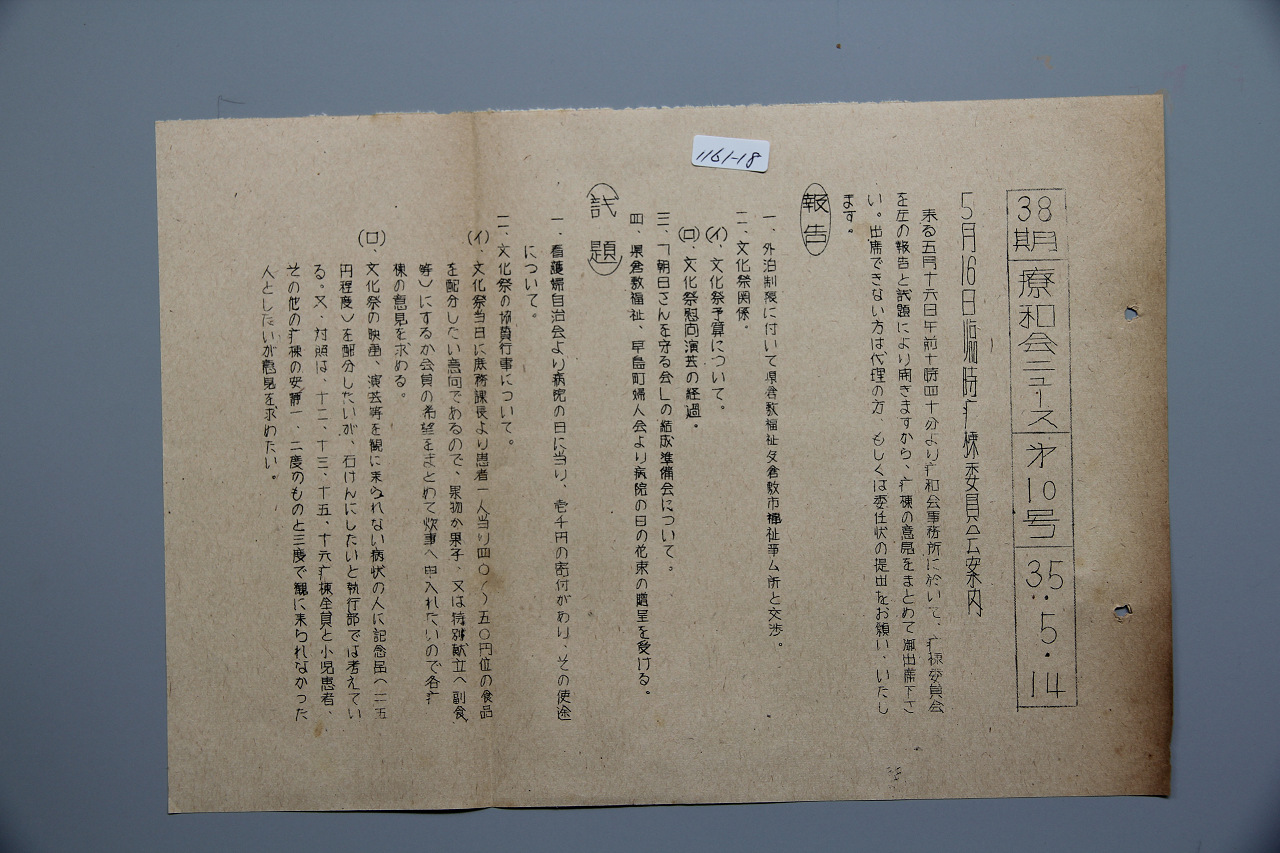 1161-18
38期 療和会ニュース 才10号 35.5.14
5月16日臨時疒棟委員会案内
来る五月十六日午前十時四十分より疒和会事務所に於いて、疒棟委員会
を左の報告と試題により開きますから、疒棟の意見をまとめて御出席下さ
い。出席できない方は代理の方、もしくは委任状の提出をお願い、いたし
ます。
報告
一、外泊制限に付いて県倉敷福祉及倉敷市福祉事ム所と交渉。
二、文化祭関係。
(イ)、文化祭予算について。
(ロ)、文化祭慰問演芸の経過。
三、「朝日さんを守る会」の結成準備会について。
四、県倉敷福祉、早島町婦人会より病院の日の花束の贈呈を受ける。
試題
一、看護婦自治会より病院の日に当り、壱千円の寄付があり、その使途
について。
二、文化祭の協賛行事について。
(イ)、文化祭当日に庶務課長より患者一人当り四〇〜五〇円位の食品
を配分したい意向であるので、果物か果子、又は特別献立(副食
等)にするか会員の希望をまとめて炊事へ申入れたいので各疒
棟の意見を求める。
(ロ)、文化祭の映画、演芸等を観に来られない病状の人に記念品(二五
円程度)を配分したいが、石けんにしたいと執行部では考えてい
る。又、対照は、十二、十三、十五、十六疒棟全員と小児患者、
その他の疒棟の安静一、二度のものと三度で観に来られなかった
人としたいが意見を求めたい。